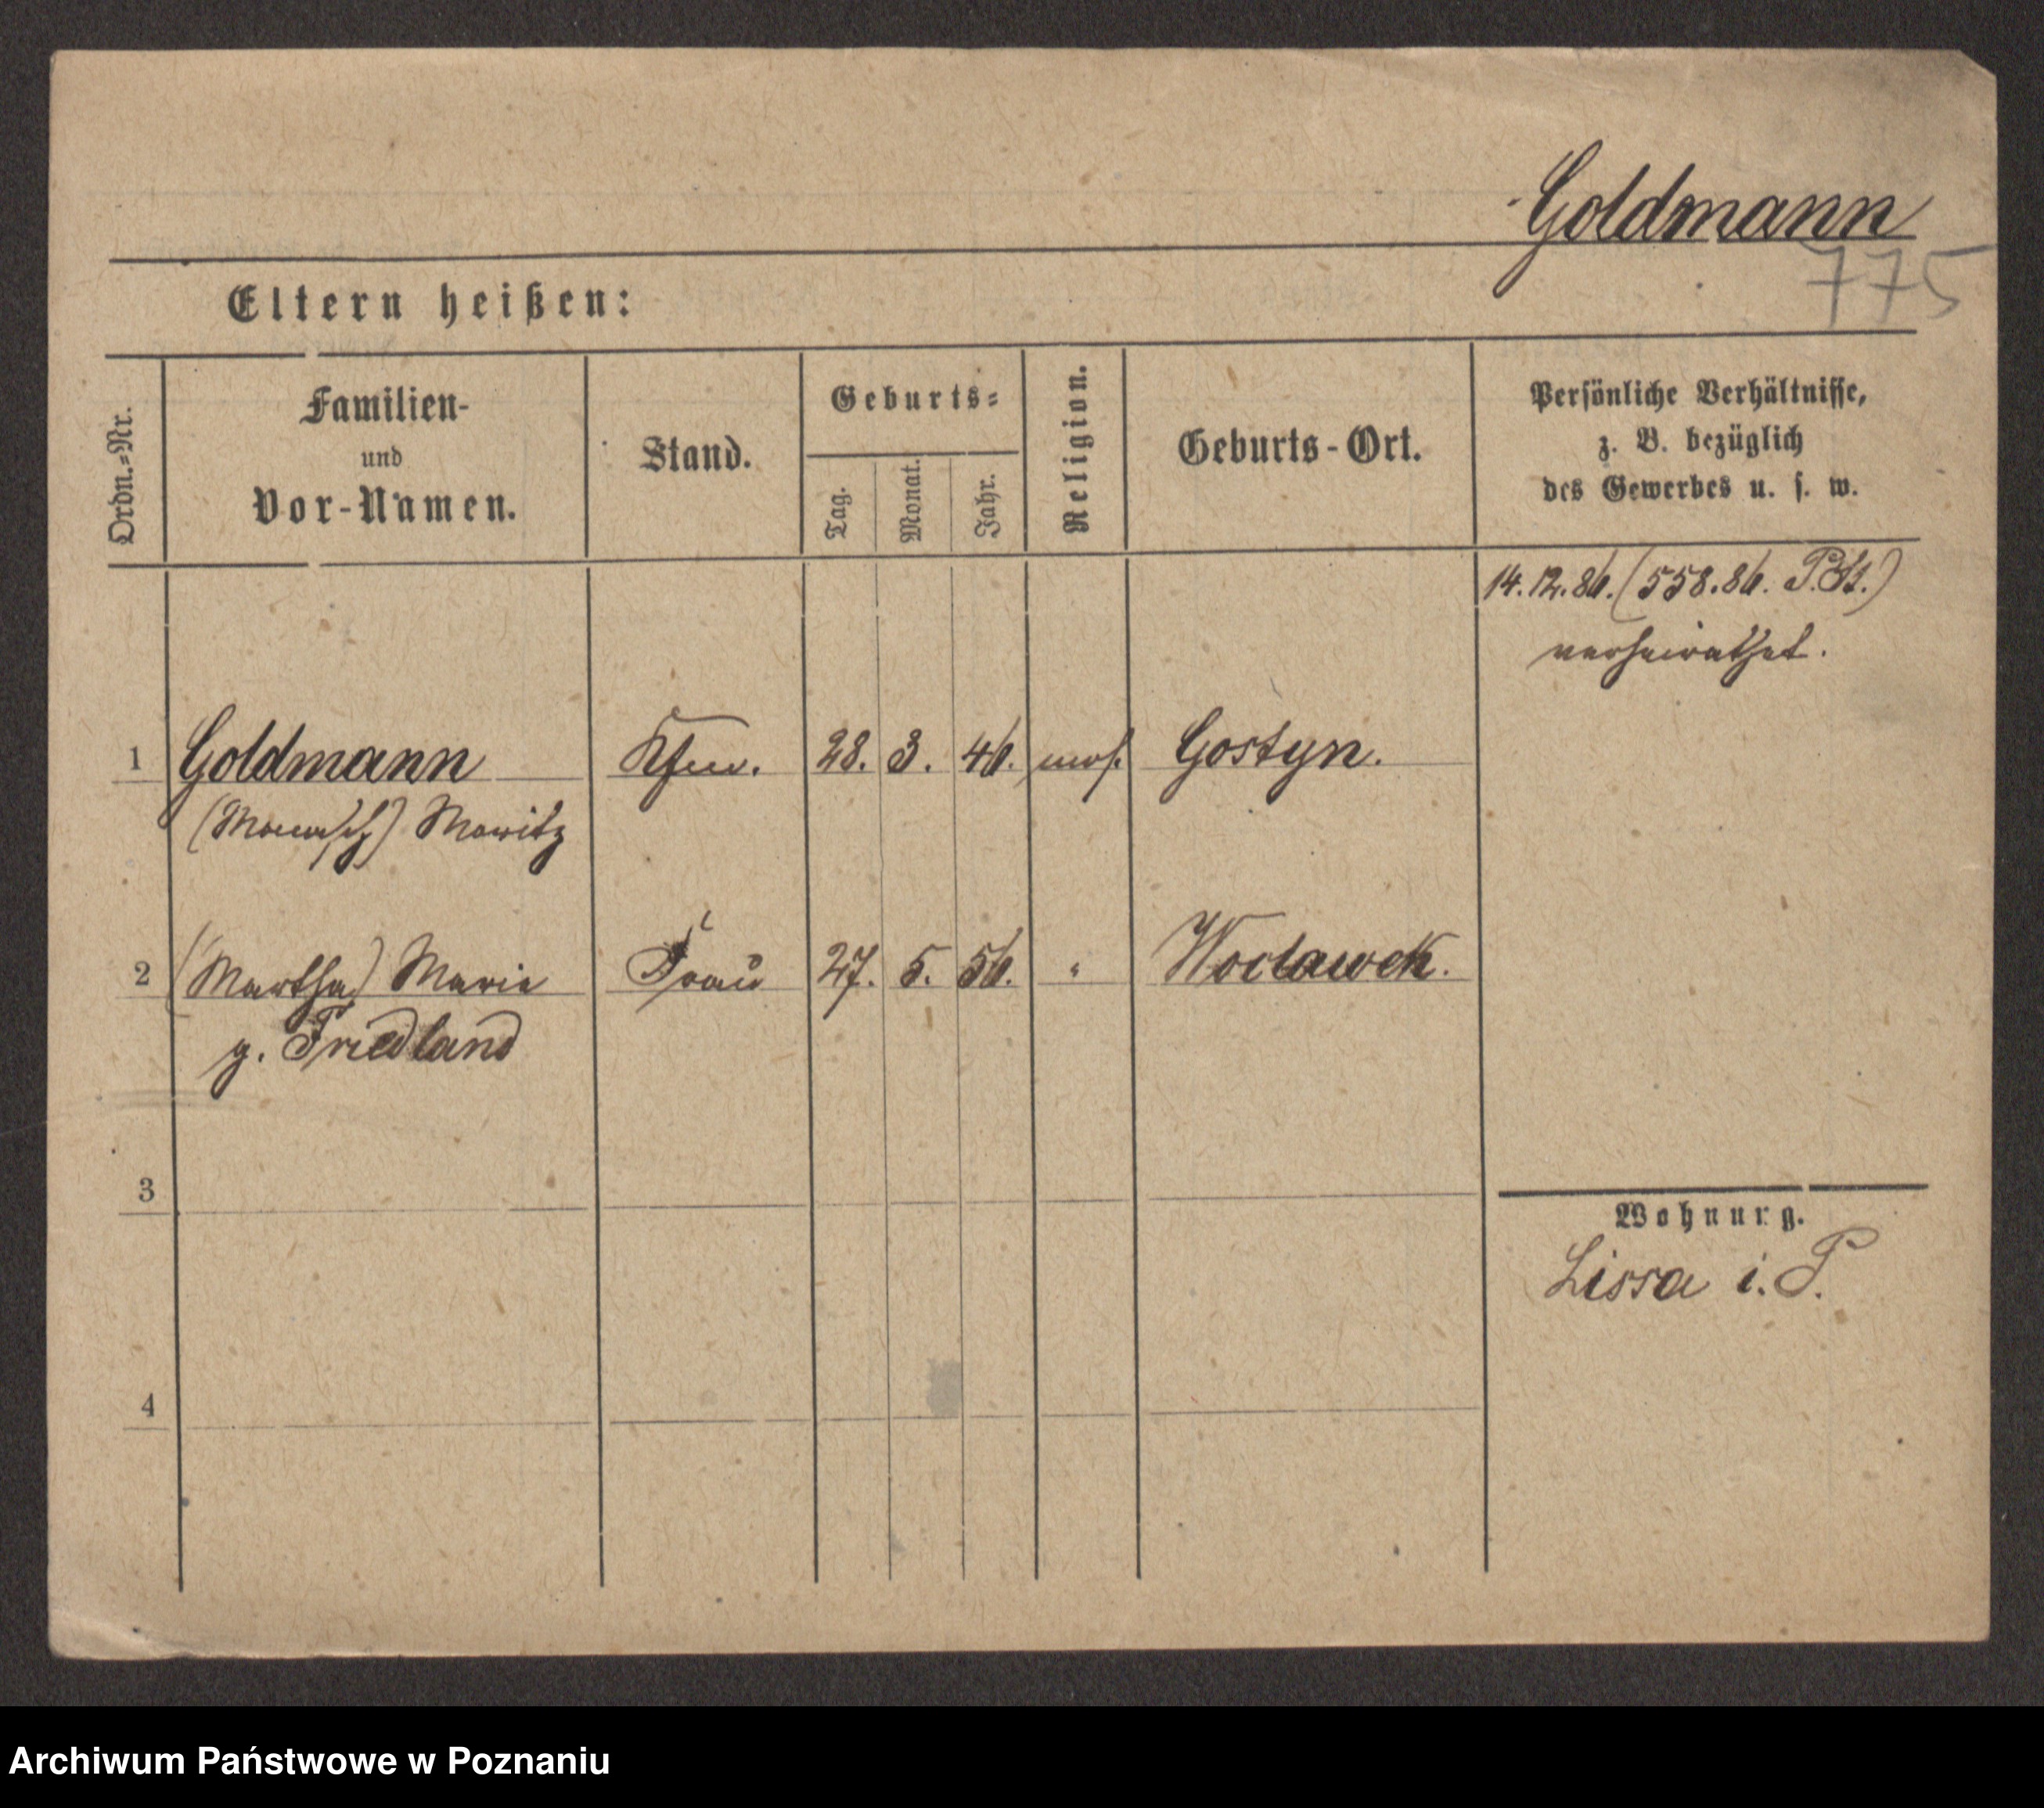 Goldmann
775
Eltern heißen:
Ordn.-Nr.
Familien-
und
Vor-Namen.
Stand.
Geburts-
Tag.
Monat.
Jahr.
Religion.
Geburts-Ort.
Persönliche Verhältnisse,
z. B. bezüglich
des Gewerbes u. s. w.
14.12.86. (558.86. P.St.)
verheirathet.
1 Goldmann Kfm. 28. 3. 46. mos. Gostyn.
Moritz
2 (Martha) Marie Frau 27. 5. 56. " Woclawek.
g. Friedland
3
Wohnung.
Lissa i. P.
4
Archiwum Państwowe w Poznaniu